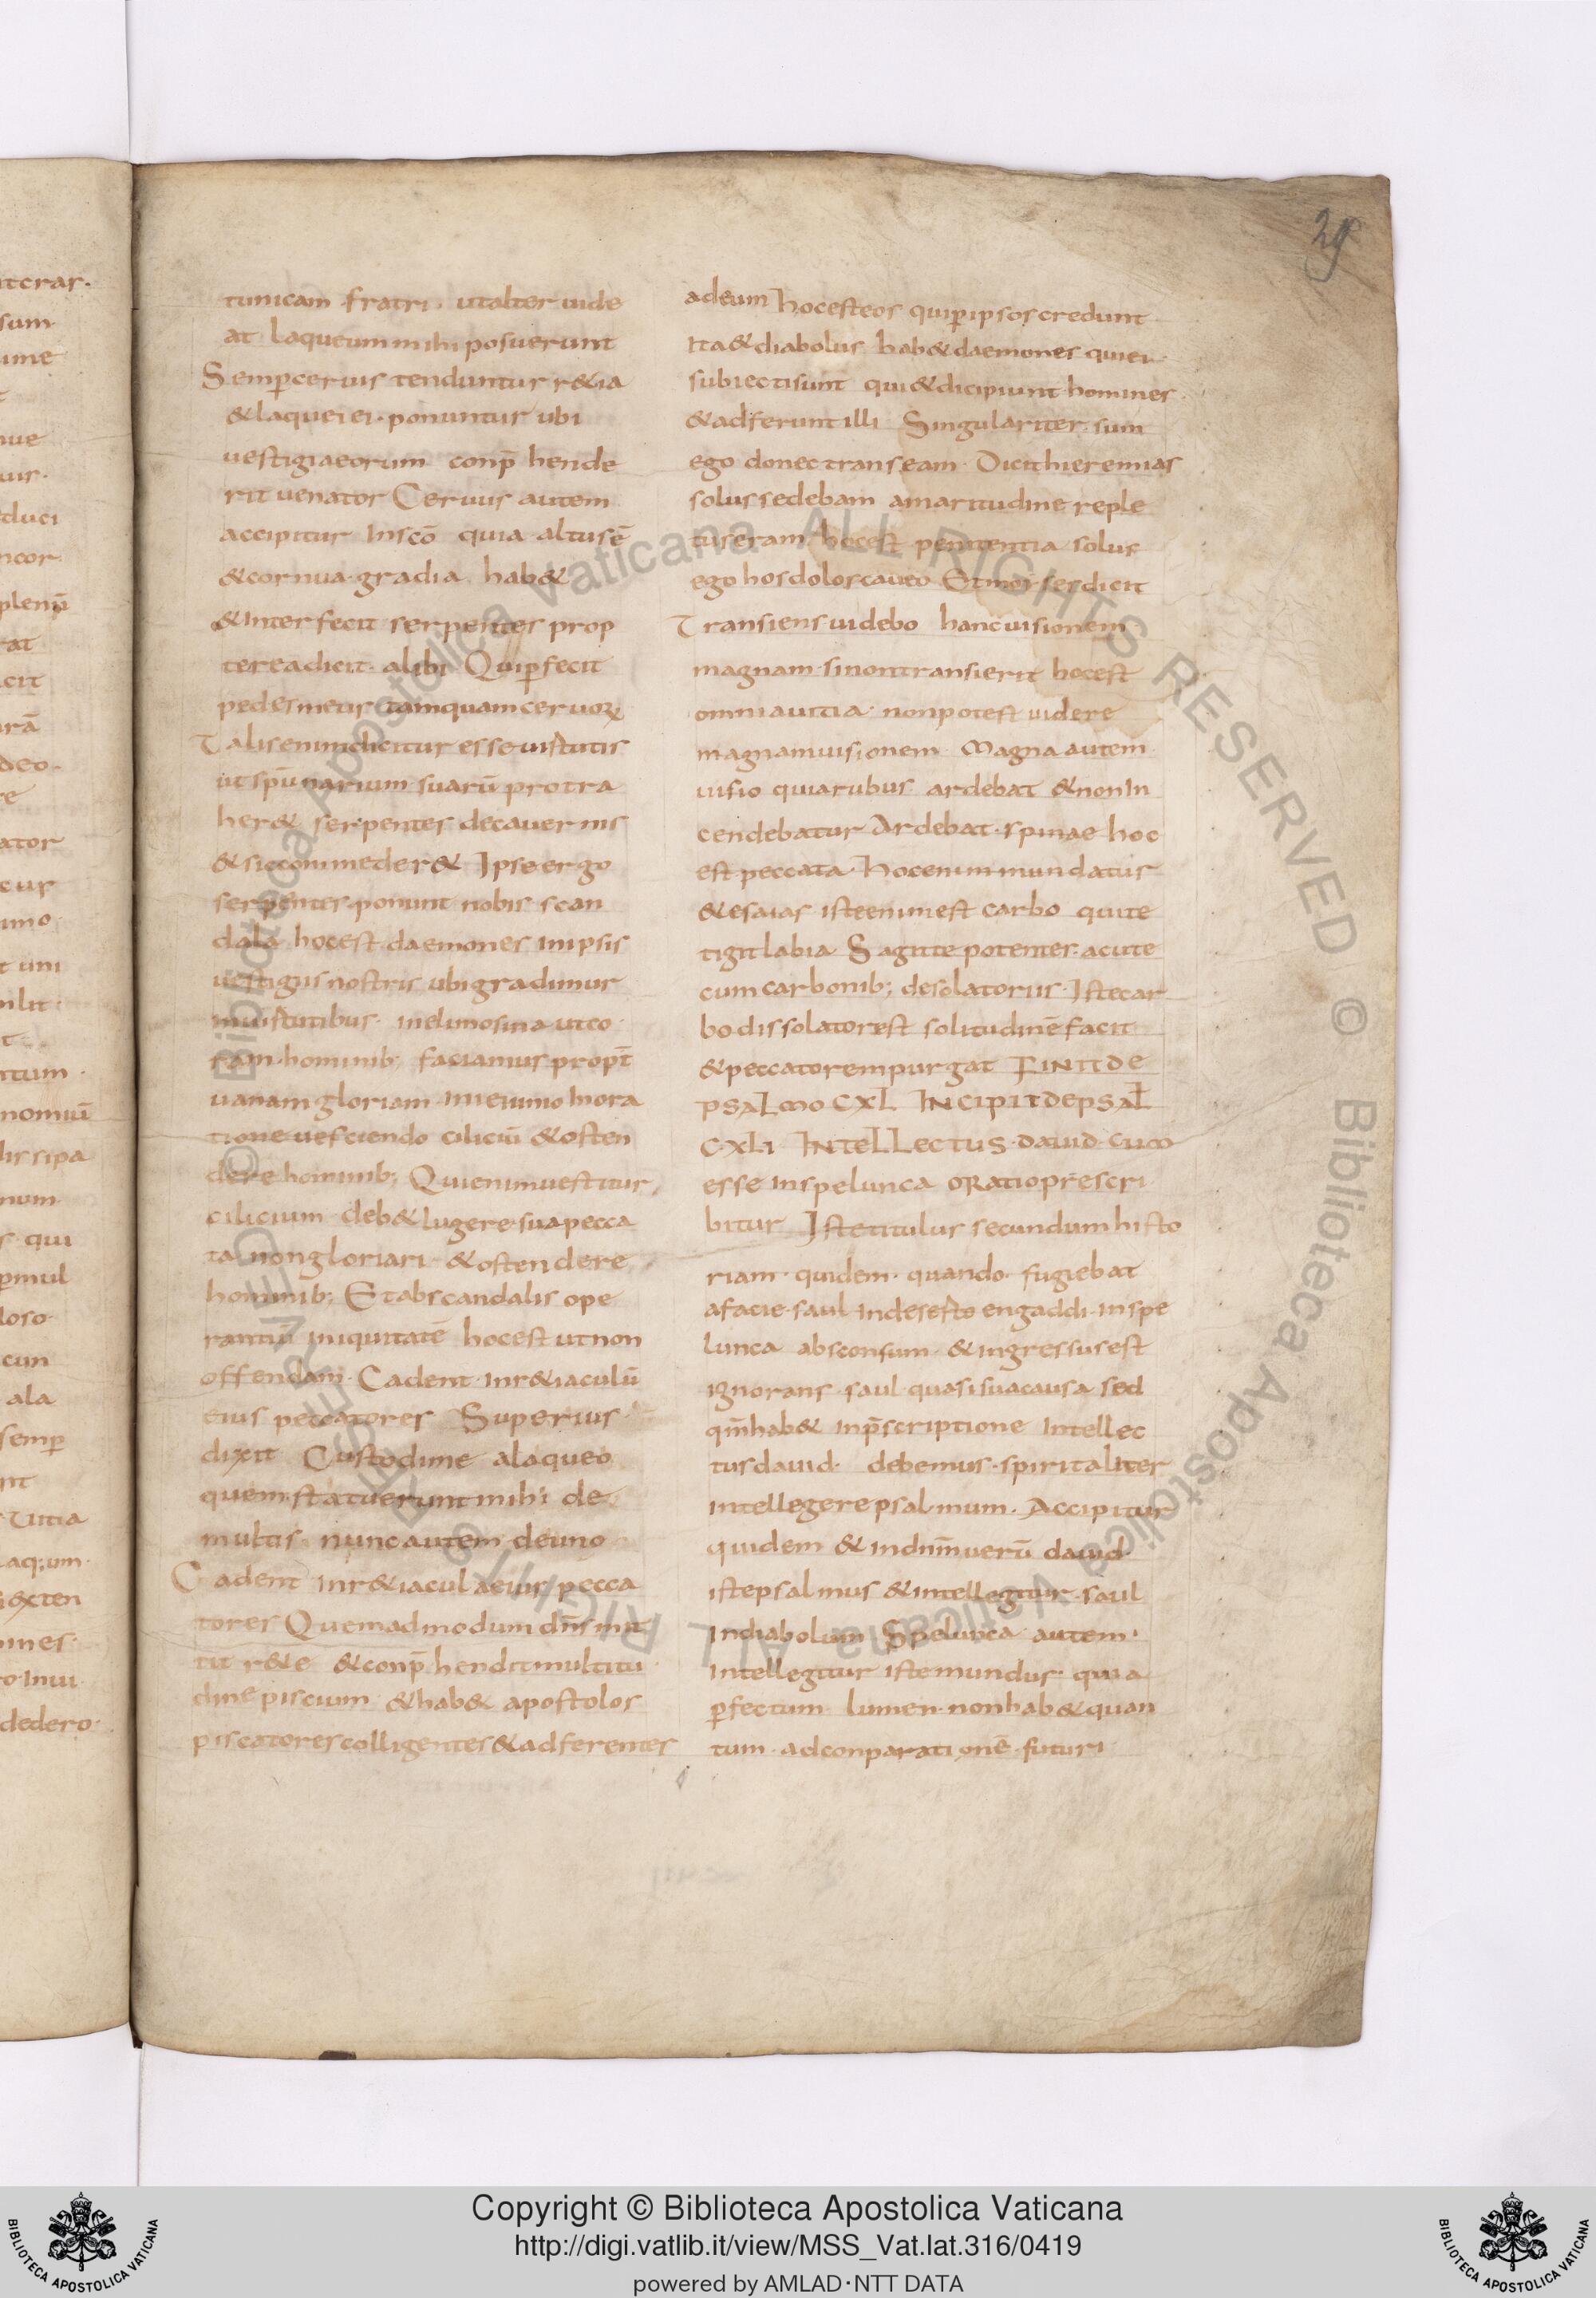 29
tunicam fratri. ut alter uide
at laqueum mihi posuerunt
Semp̄ ceruis tenduntur r&ia
& laquei ei. ponuntur ubi
uestigia eorum conp̄hende
rit uenator Ceruus autem
accipitur In scō quia altus ē
& cornua gradia hab&
& Interfecit serpentes prop
terea dicit. alibi Qui p̄fecit
pedes meos tamquam ceruoꝝ
Talis enim dicitur esse uirtutis
ut sp̄u narium suarū protra
her& serpentes de cauernis
& sic commeder& Ipse ergo
serpentes ponunt nobis scan
dala hoc est daemones in ipsis
uestigiis nostris ubi gradimur
in uirtutibus. in elimosina ut co
ram. hominib; faciamus propt̄
uanam gloriam. in ieiunio In ora
tione uesciendo ciliciū & osten
dere hominib; Qui enim uestitur
cilicium deb& lugere sua pecca
ta non gloriari & ostendere
hominib; Et ab scandalis ope
rantiū iniquitatē hoc est ut non
offendam. Cadent. in r&iaculū
eius peccatores Superius
dixit Custodi me a laqueo
quem statuerunt mihi de
multis. nunc autem de uno
Cadent in r&iacula eius pecca
tores Quemadmodum dn̄s mit
tit r&e & conp̄hendit multitu
dine piscium & hab& apostolos
piscatores colligentes & adferentes
ad eum hoc est eos qui p̄ ipsos credunt
Ita & diabolus hab& daemones qui ei.
subiecti sunt qui & dicipiunt homines
& adferunt illi Singulariter. sum
ego donec transeam. Dicit hieremias
solus sedebam amaritudine reple
tus eram. hoc est penitentia solus
ego hos dolos caueo Et moises dicit
Transiens uidebo hanc uisionem
magnam. si non transierit hoc est
omnia uitia. non potest uidere
magnam uisionem. Magna autem
uisio quia rubus ardebat & non In
cendebatur Ardebat. spinae hoc
est peccata. Hoc enim mundatus
& esaias iste enim est carbo qui te
tigit labia Sagitte potentes. acute
cum carbonib; desolatoriis. Iste car
bo dissolator est solitudinē facit
& peccatorem purgat FINIT DE
PSALMO CXL INCIPIT DE PSAL̄
CXLI INTELLECTUS. DAUID. CUM
esse in spelunca ORATIO prescri
bitur Iste titulus secundum histo
riam. quidem. quando. fugiebat
a facie. saul In deserto engaddi. in spe
lunca absconsum. & ingressus est
ignorans. saul quasi sua causa sed
qm̄ hab& in p̄scriptione Intellec
tus dauid. debemus. spiritaliter
intellegere psalmum. Accipitur
quidem & in dn̄m uerū dauid.
iste psalmus & intellegitur. saul
In diabolum. Spelunca autem.
Intellegitur iste mundus. quia
p̄fectum lumen. non hab& quan
tum. ad conparationē. futuri
iterar.
sum.
ime
uis.
duci
ncor.
plenū
rat
cit
deo.
re
ator
cur
imo.
t uni
ntum
nomiū
lissipa
nom
s. qui
p̄mul
loso.
cun
ala
semp̄
nt
Uitia
laq;um.
&xten
ines.
ro. Inui
dedero.
© Biblioteca Apostolica Vaticana ALL RIGHTS RESERVED © Biblioteca Apostolica Vaticana ALL RIGHTS RESERVED
Copyright © Biblioteca Apostolica Vaticana
http://digi.vatlib.it/view/MSS_Vat.lat.316/0419
powered by AMLAD·NTT DATA
BIBLIOTECA APOSTOLICA VATICANA
BIBLIOTECA APOSTOLICA VATICANA